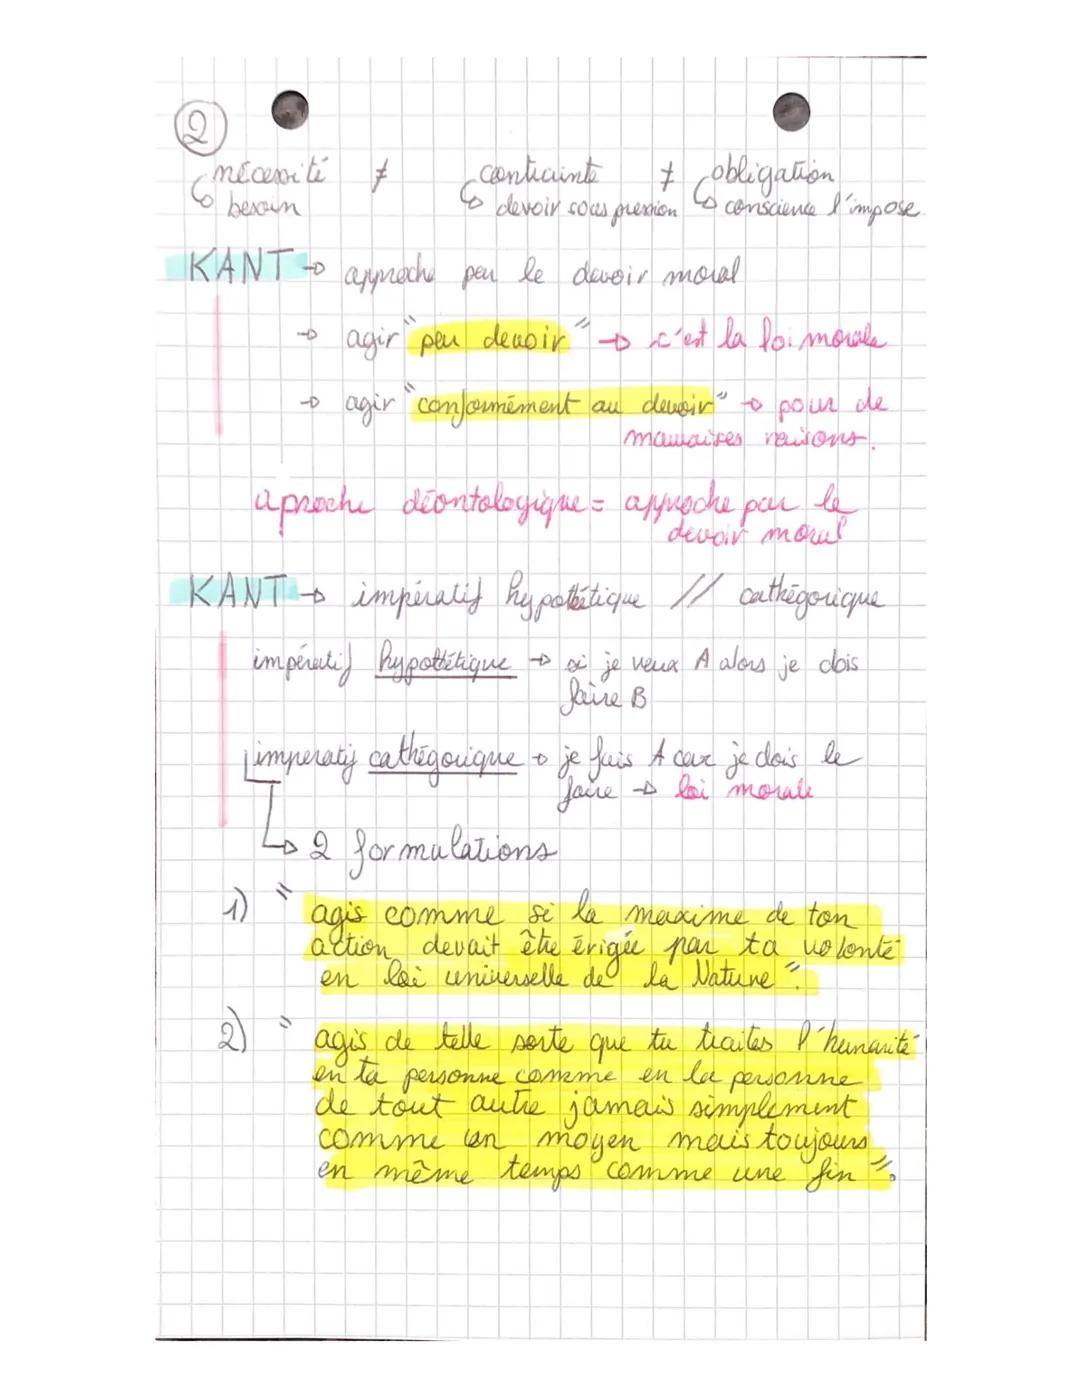 2
nécessité ≠ contrainte ≠ obligation
↳ besoin ↳ devoir sous pression ↳ conscience l'impose
KANT → approche par le devoir moral
→ agir "par devoir" → c'est la loi morale
→ agir "conformément au devoir" → pour de
mauvaises raisons.
aproche déontologique = approche par le
devoir moral
KANT → impératif hypothétique // cathégorique
impératif hypothétique → si je veux A alors je dois
faire B
imperatif cathégorique → je fais A car je dois le
faire → loi morale
↳ 2 formulations
1) " agis comme si la maxime de ton
action devait être érigée par ta volonté
en loi universelle de la Nature".
2) " agis de telle sorte que tu traites l'humanité
en ta personne comme en la personne
de tout autre jamais simplement
comme un moyen mais toujours
en même temps comme une fin".